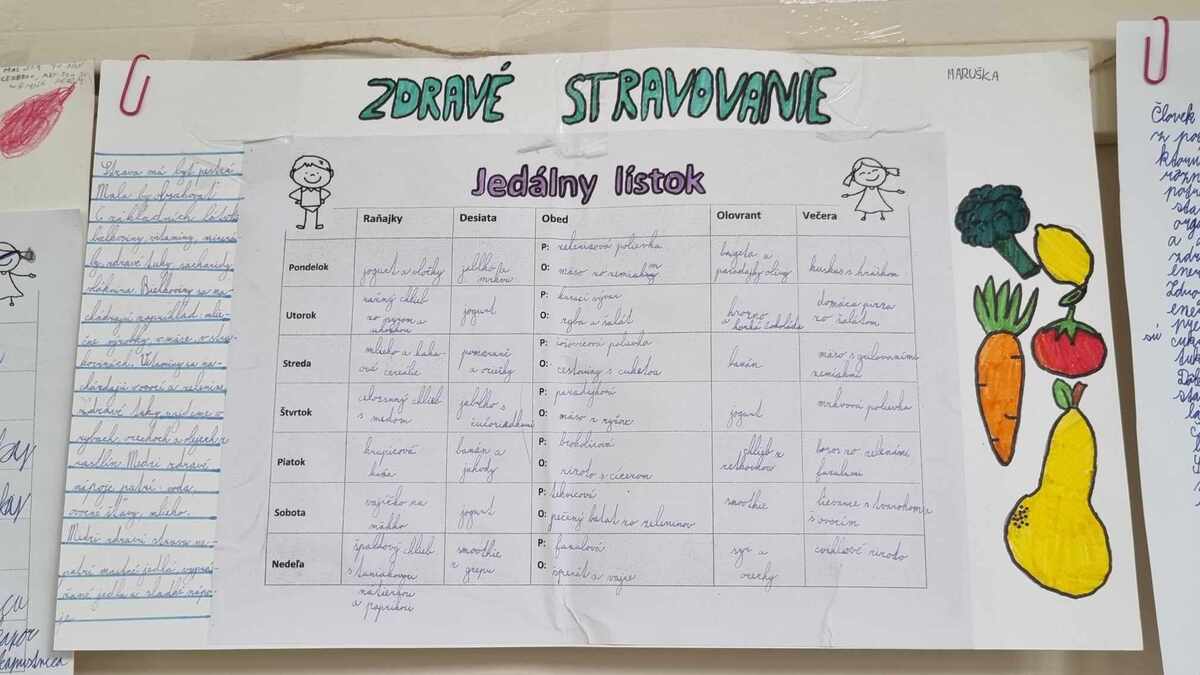 MARUŠKA
ZDRAVÉ STRAVOVANIE
Strava má byť pestrá
Mala by obsahovať
6 základných
bielkoviny, vitamíny,
zdravé tuky, sacharidy
vláknina. Bielkoviny sa na-
chádzajú napríklad mlie-
čne výrobky, v mäse, v stru-
kovinách. Vitamíny sa na-
chádzajú v ovocí a zelenine
Zdravé tuky nájdeme v
rybách, orechoch a olejoch z
rastlín. Medzi zdravé
nápoje patrí: voda,
ovocné šťavy, mlieko.
Medzi zdravú stravu ne-
patrí mastné jedlá, vypra-
žané jedlá a sladké nápo-
je.
Jedálny lístok
Raňajky Desiata Obed Olovrant Večera
Pondelok
jogurt a vločky
jablko a
mrkva
P: zeleninová polievka
O: mäso so zemiakmi
bageta a
paradajky olivy
kuskus s hráškom
Utorok
ražný chlieb
so syrom a
jogurt
P: kurací vývar
O: ryba a šalát
hrozno
a horká čokoláda
domáca pizza
so šalátom
Streda
mlieko a kaka-
ové cereálie
pomaranč
a oriešky
P: šošovicová polievka
O: cestoviny s cuketou
banán
mäso s grilovanými
zemiakmi
Štvrtok
celozrnný chlieb
s medom
jablko s
čučoriedkami
P: paradajková
O: mäso s ryžou
jogurt
mrkvová polievka
Piatok
krupicová
kaša
banán a
jahody
P: brokolicová
O: rizoto s cícerom
chlieb s
reďkovkou
losos so zelenými
fazuľami
Sobota
vajíčko na
mäkko
jogurt
P: tekvicová
O: pečený batat so zeleninou
smoothie
lievance s tvarohom
s ovocím
Nedeľa
špaldový chlieb
s tuniakovou
nátierkou
a paprikou
smoothie
z grepu
P: fazuľová
O: špenát a vajce
syr a
orechy
cviklové rizoto
Človek